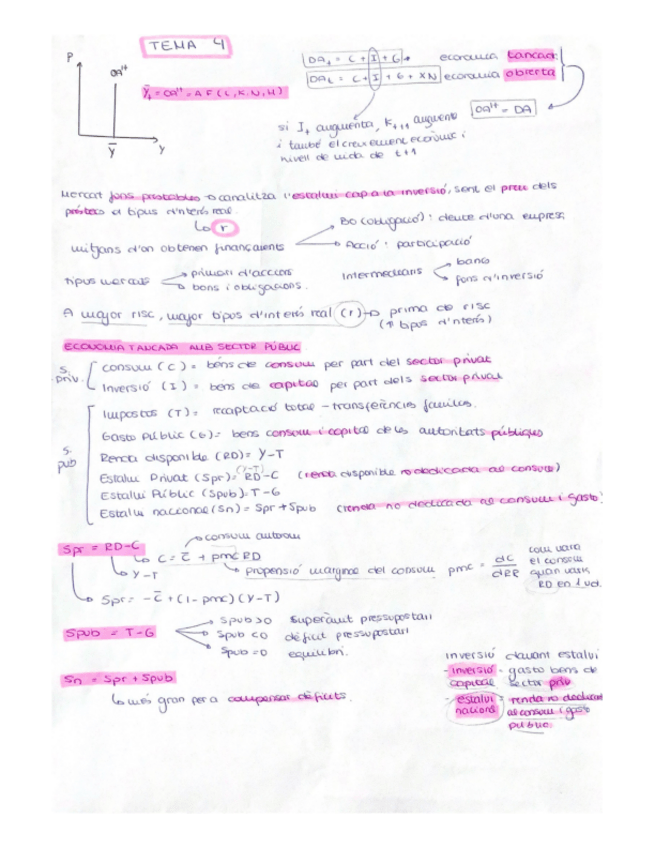 TEMA 4
P
OAᴸᴾ
Ȳ
Y
Ȳₜ = OAᴸᴾ = A F(L, K, N, H)
DAₜ = C + I + G → economia tancada
DAₜ = C + I + G + XN economia oberta
OAᴸᴾ = DA
si Iₜ augmenta, Kₜ₊₁ augmenta
i també el creixement econòmic i
nivell de vida de t+1
Mercat fons prestables → canalitza l'estalvi cap a la inversió, sent el preu dels
préstecs el tipus d'interés real.
↳ r
mitjans d'on obtenen finançament
BO (obligació): deute d'una empresa
Acció: participació
Tipus mercats
primari d'accions
bons i obligacions.
Intermediaris
bancs
fons d'inversió
A major risc, major tipos d'interés real (r) → prima de risc
(↑ tipos d'interés)
ECONOMIA TANCADA AMB SECTOR PÚBLIC
S. priv.
consum (C) = béns de consum per part del sector privat
Inversió (I) = bens de capital per part dels sector privat
S. pub
Impostos (T) = recaptació total - transferències famílies.
Gasto Públic (G) = bens consum i capital de les autoritats públiques
Renda disponible (RD) = Y-T
Estalvi Privat (Spr) = RD - C (renda disponible no dedicada al consum)
(Y-T)
Estalvi Públic (Spub) = T-G
Estalvi nacional (Sn) = Spr + Spub (renda no dedicada al consum i gasto)
Spr = RD-C
consum autonom
C = C̄ + pmc RD
Y-T
propensió marginal del consum pmc = dC/dRD
com varia
el consum
quan varia
RD en 1 ud.
Spr = -C̄ + (1-pmc)(Y-T)
Spub = T-G
Spub >0 superàvit pressupostari
Spub <0 dèficit pressupostari
Spub =0 equilibri.
Sn = Spr + Spub
↳ més gran per a compensar dèficits.
inversió davant estalvi
- inversió - gasto bens de
capital sector priv
- estalvi = renda no dedicada
nacional al consum i gasto
públic.